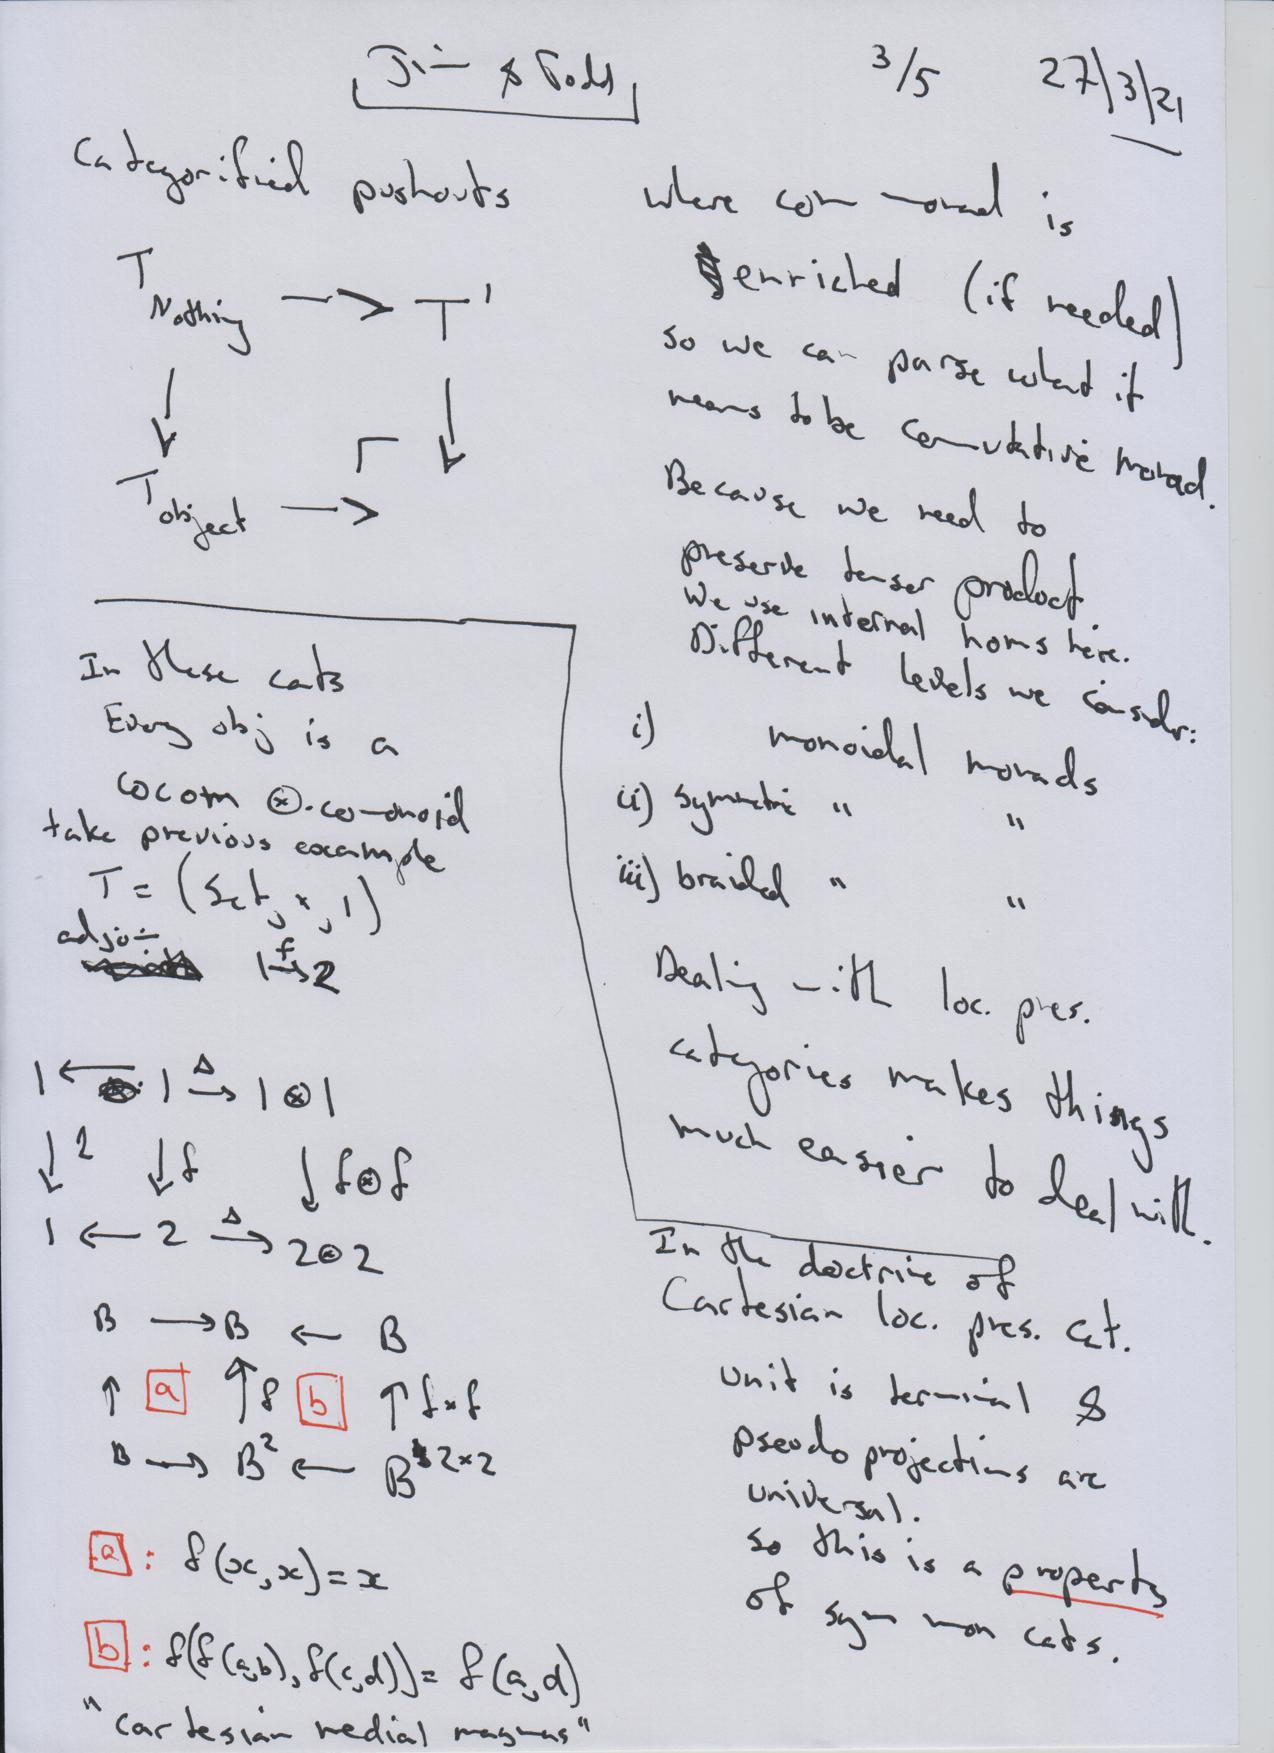 Jim & Todd
3/5
27/3/21
Categorified pushouts
T Nothing → T'
↓ Γ ↓
T object →
In these cats
Every obj is a
cocom ⊗-comonoid
take previous example
T = (Set, ×, 1)
adjoin
1 →f 2
1 ← 1 Δ→ 1⊗1
↓ 2 ↓ f ↓ f⊗f
1 ← 2 Δ→ 2⊗2
B → B ← B
↑ a ↑ f b ↑ f×f
B → B² ← B 2×2
a : f(x,x) = x
b : f(f(a,b), f(c,d)) = f(a,d)
"cartesian medial magmas"
where com monad is
enriched (if needed)
so we can parse what it
means to be commutative monad.
Because we need to
preserve tensor product
We use internal homs here.
Different levels we consider:
i) monoidal monads
ii) symmetric " "
iii) braided " "
Dealing with loc. pres.
categories makes things
much easier to deal with.
In the doctrine of
Cartesian loc. pres. cat.
unit is terminal &
pseudo projections are
universal.
so this is a property
of sym mon cats.